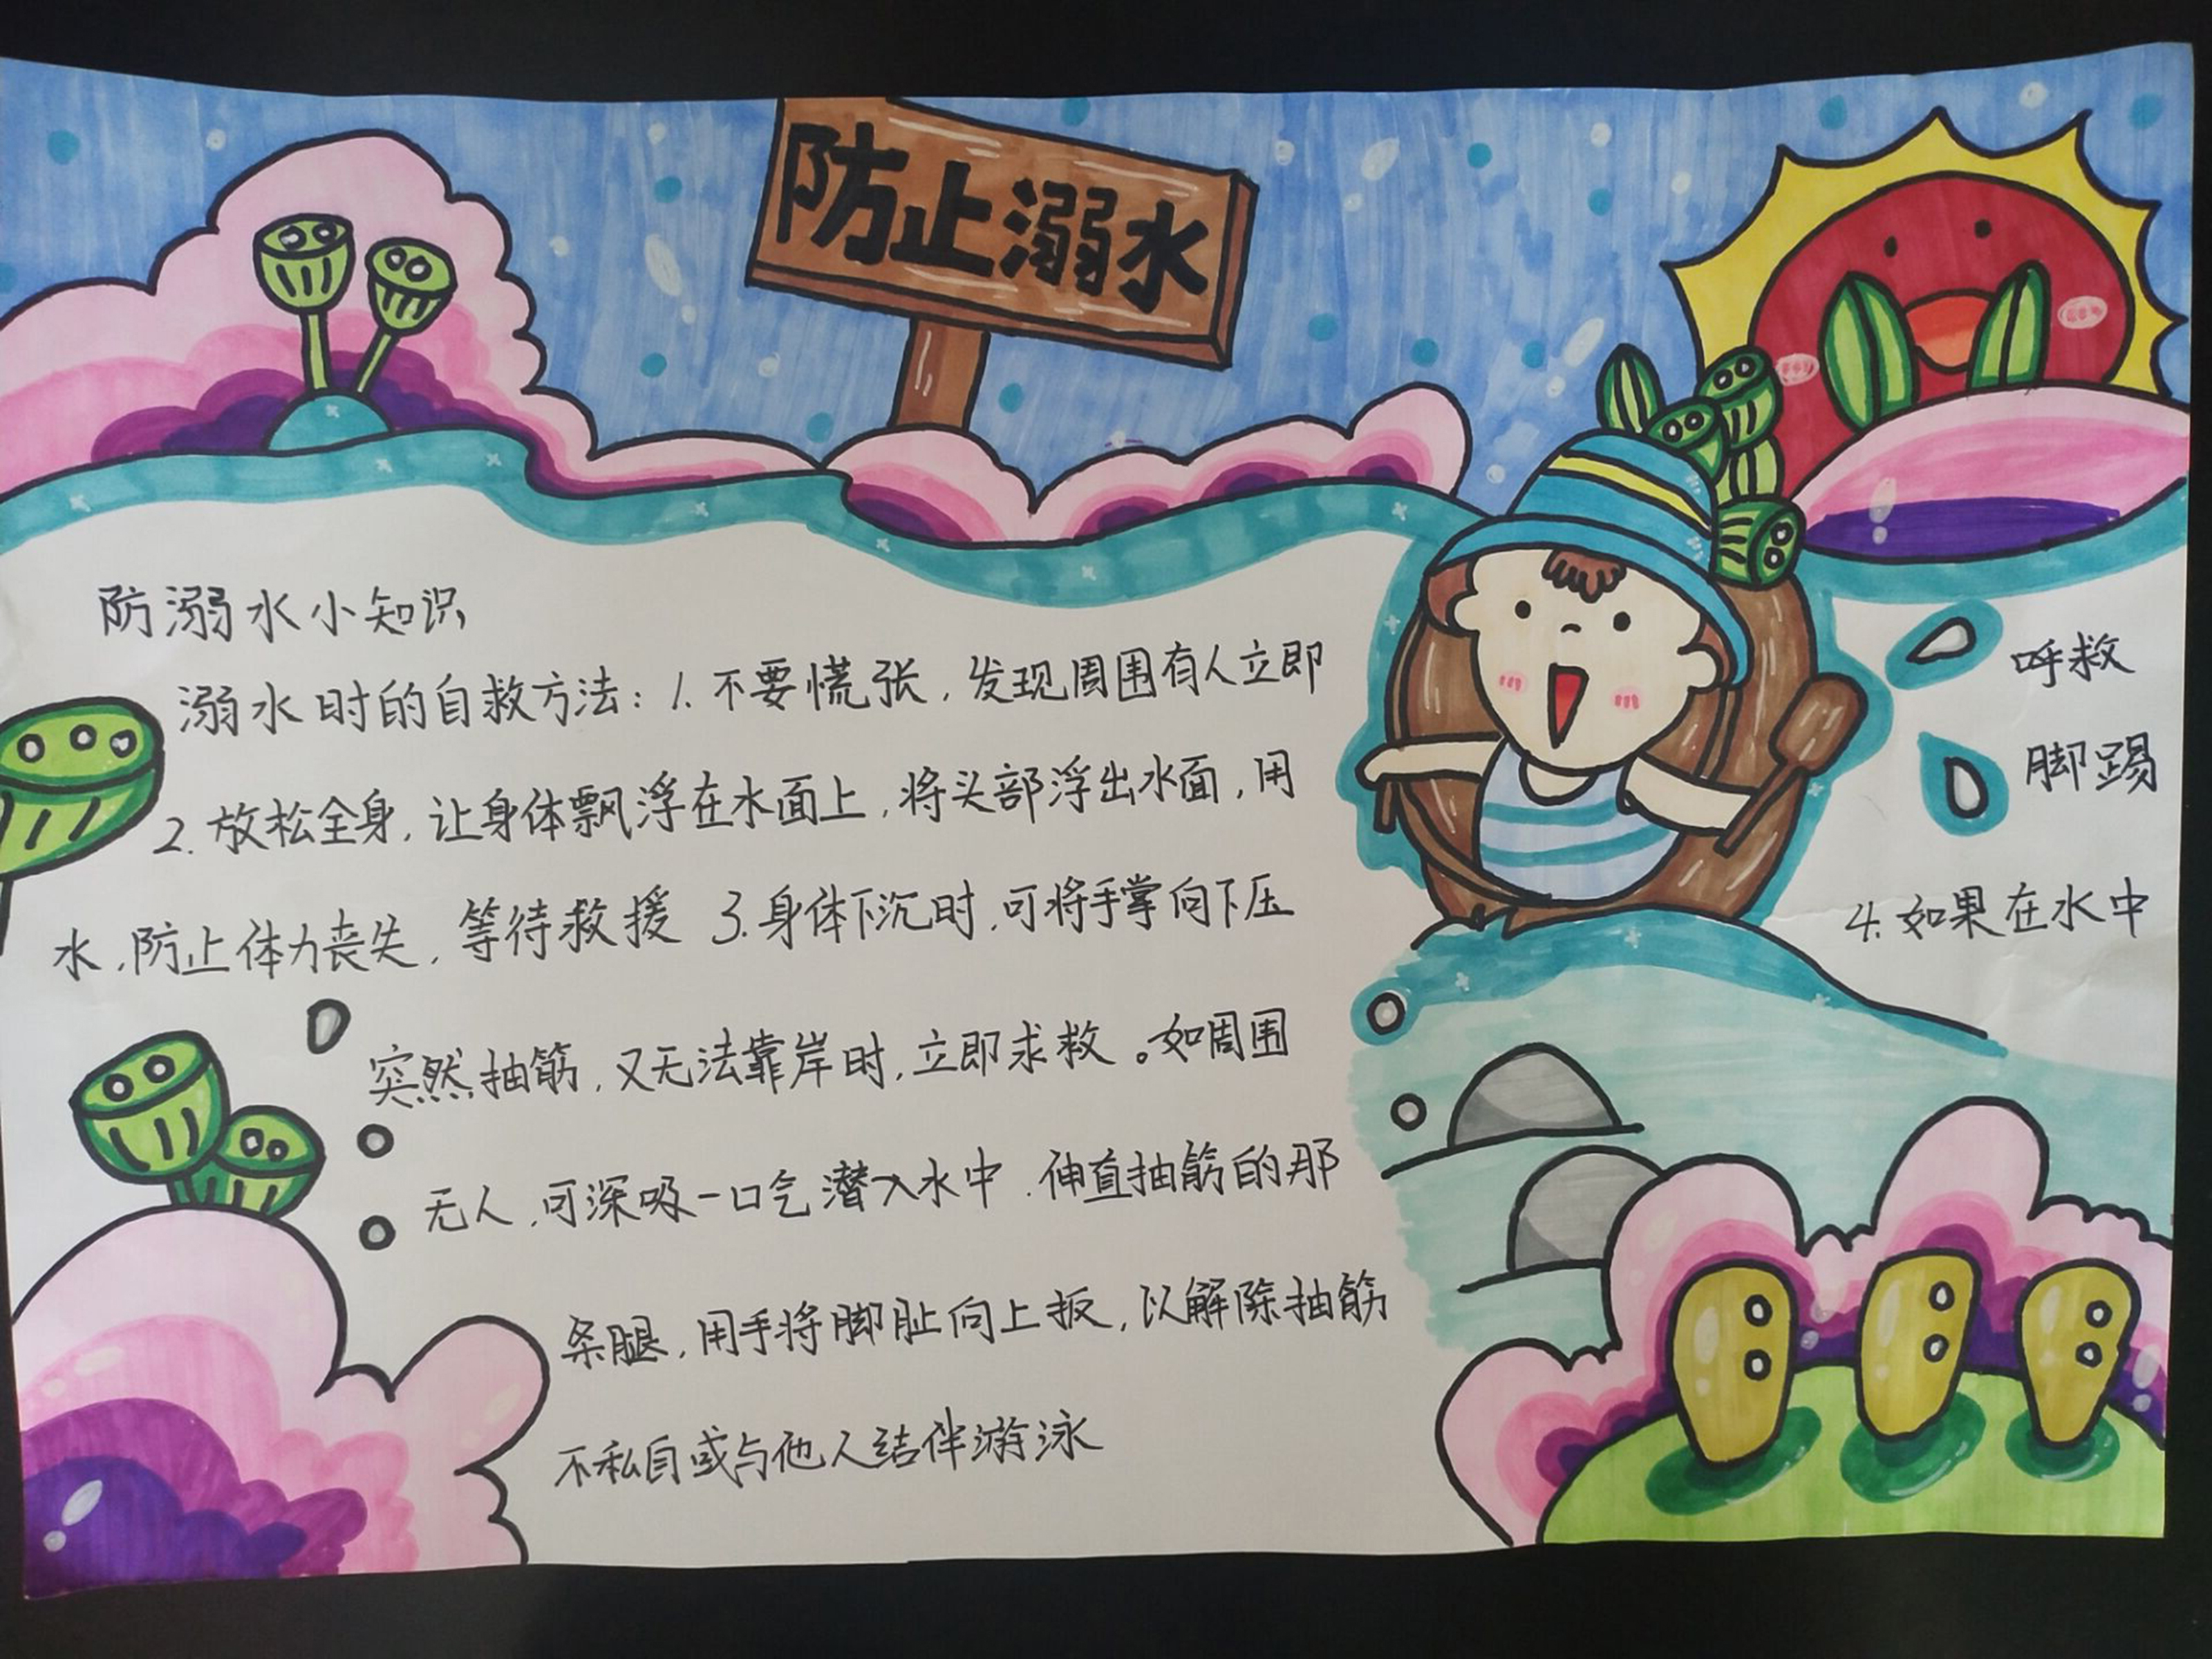 防止溺水
防溺水小知识
溺水时的自救方法：1.不要慌张，发现周围有人立即
呼救
2.放松全身，让身体飘浮在水面上，将头部浮出水面，用
脚踢
水，防止体力丧失，等待救援 3.身体下沉时，可将手掌向下压
4.如果在水中
突然抽筋，又无法靠岸时，立即求救。如周围
无人，可深吸一口气潜入水中，伸直抽筋的那
条腿，用手将脚趾向上扳，以解除抽筋
不私自或与他人结伴游泳